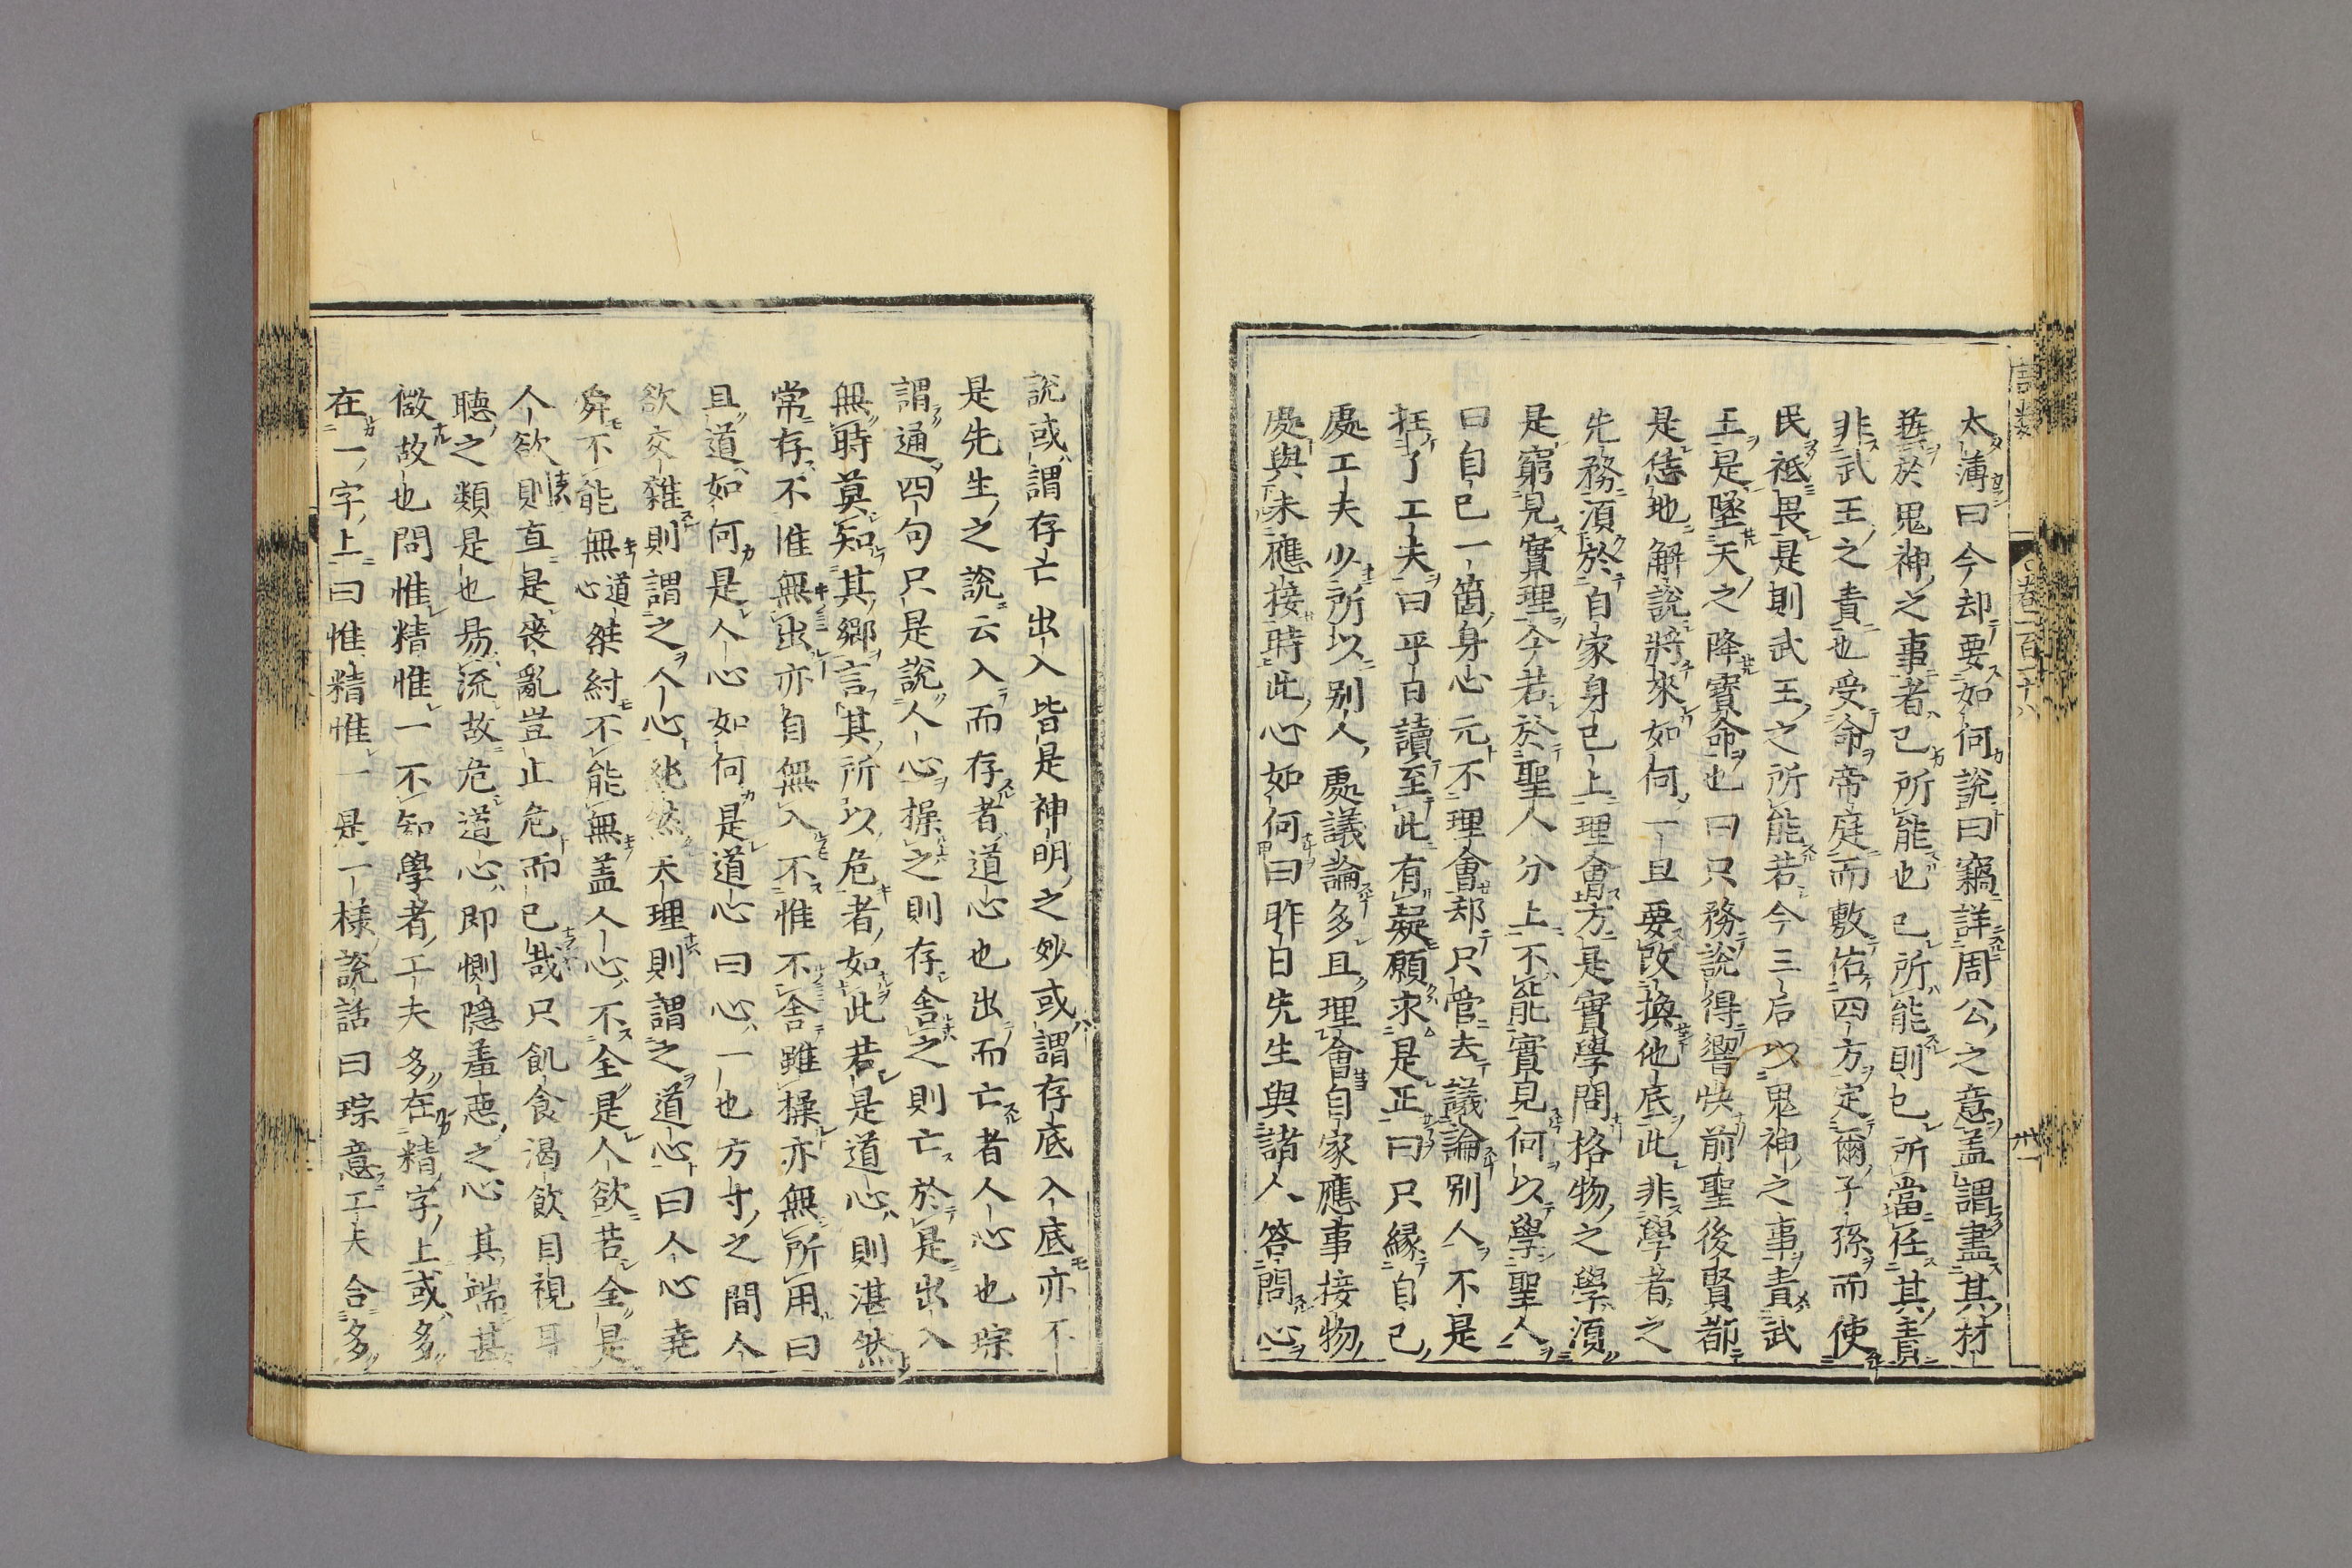 太薄曰今却要如何說曰竊詳周公之意盖謂盡其材
藝於鬼神之事者己所能也己所能則己所當任其責
非武王之責也受命帝庭而敷佑四方定爾子孫而使
民祗畏是則武王之所能若今三后以鬼神之事責武
王是墜天之降寶命也曰只務說得響快前聖後賢都
是恁地解說將來如何一旦要改換他底此非學者之
先務須於自家身己上理會方是實學問格物之學須
是窮見實理今若於聖人分上不能實見何以學聖人
曰自己一箇身心元不理會却只管去議論別人不是
枉了工夫曰平日讀至此有疑願求是正曰只緣自己
處工夫少所以別人處議論多且理會自家應事接物
處與未應接時此心如何曰昨日先生與諸人答問心
說或謂存亡出入皆是神明之妙或謂存底入底亦不
是先生之說云入而存者道心也出而亡者人心也琮
謂通四句只是說人心操之則存舍之則亡於是出入
無時莫知其鄉言其所以危者如此若是道心則湛然
常存不惟無出亦自無入不惟不舍雖操亦無所用曰
且道如何是人心如何是道心曰心一也方寸之間人
欲交雜則謂之人心純然天理則謂之道心曰人心堯
舜不能無道心桀紂不能無盖人心不全是人欲若全是
人欲則直是喪亂豈止危而已哉只飢食渴飲目視耳
聽之類是也易流故危道心即惻隱羞惡之心其端甚
微故也問惟精惟一不知學者工夫多在精字上或多
在一字上曰惟精惟一是一樣說話曰琮意工夫合多
語類
卷一百一十八
卅一